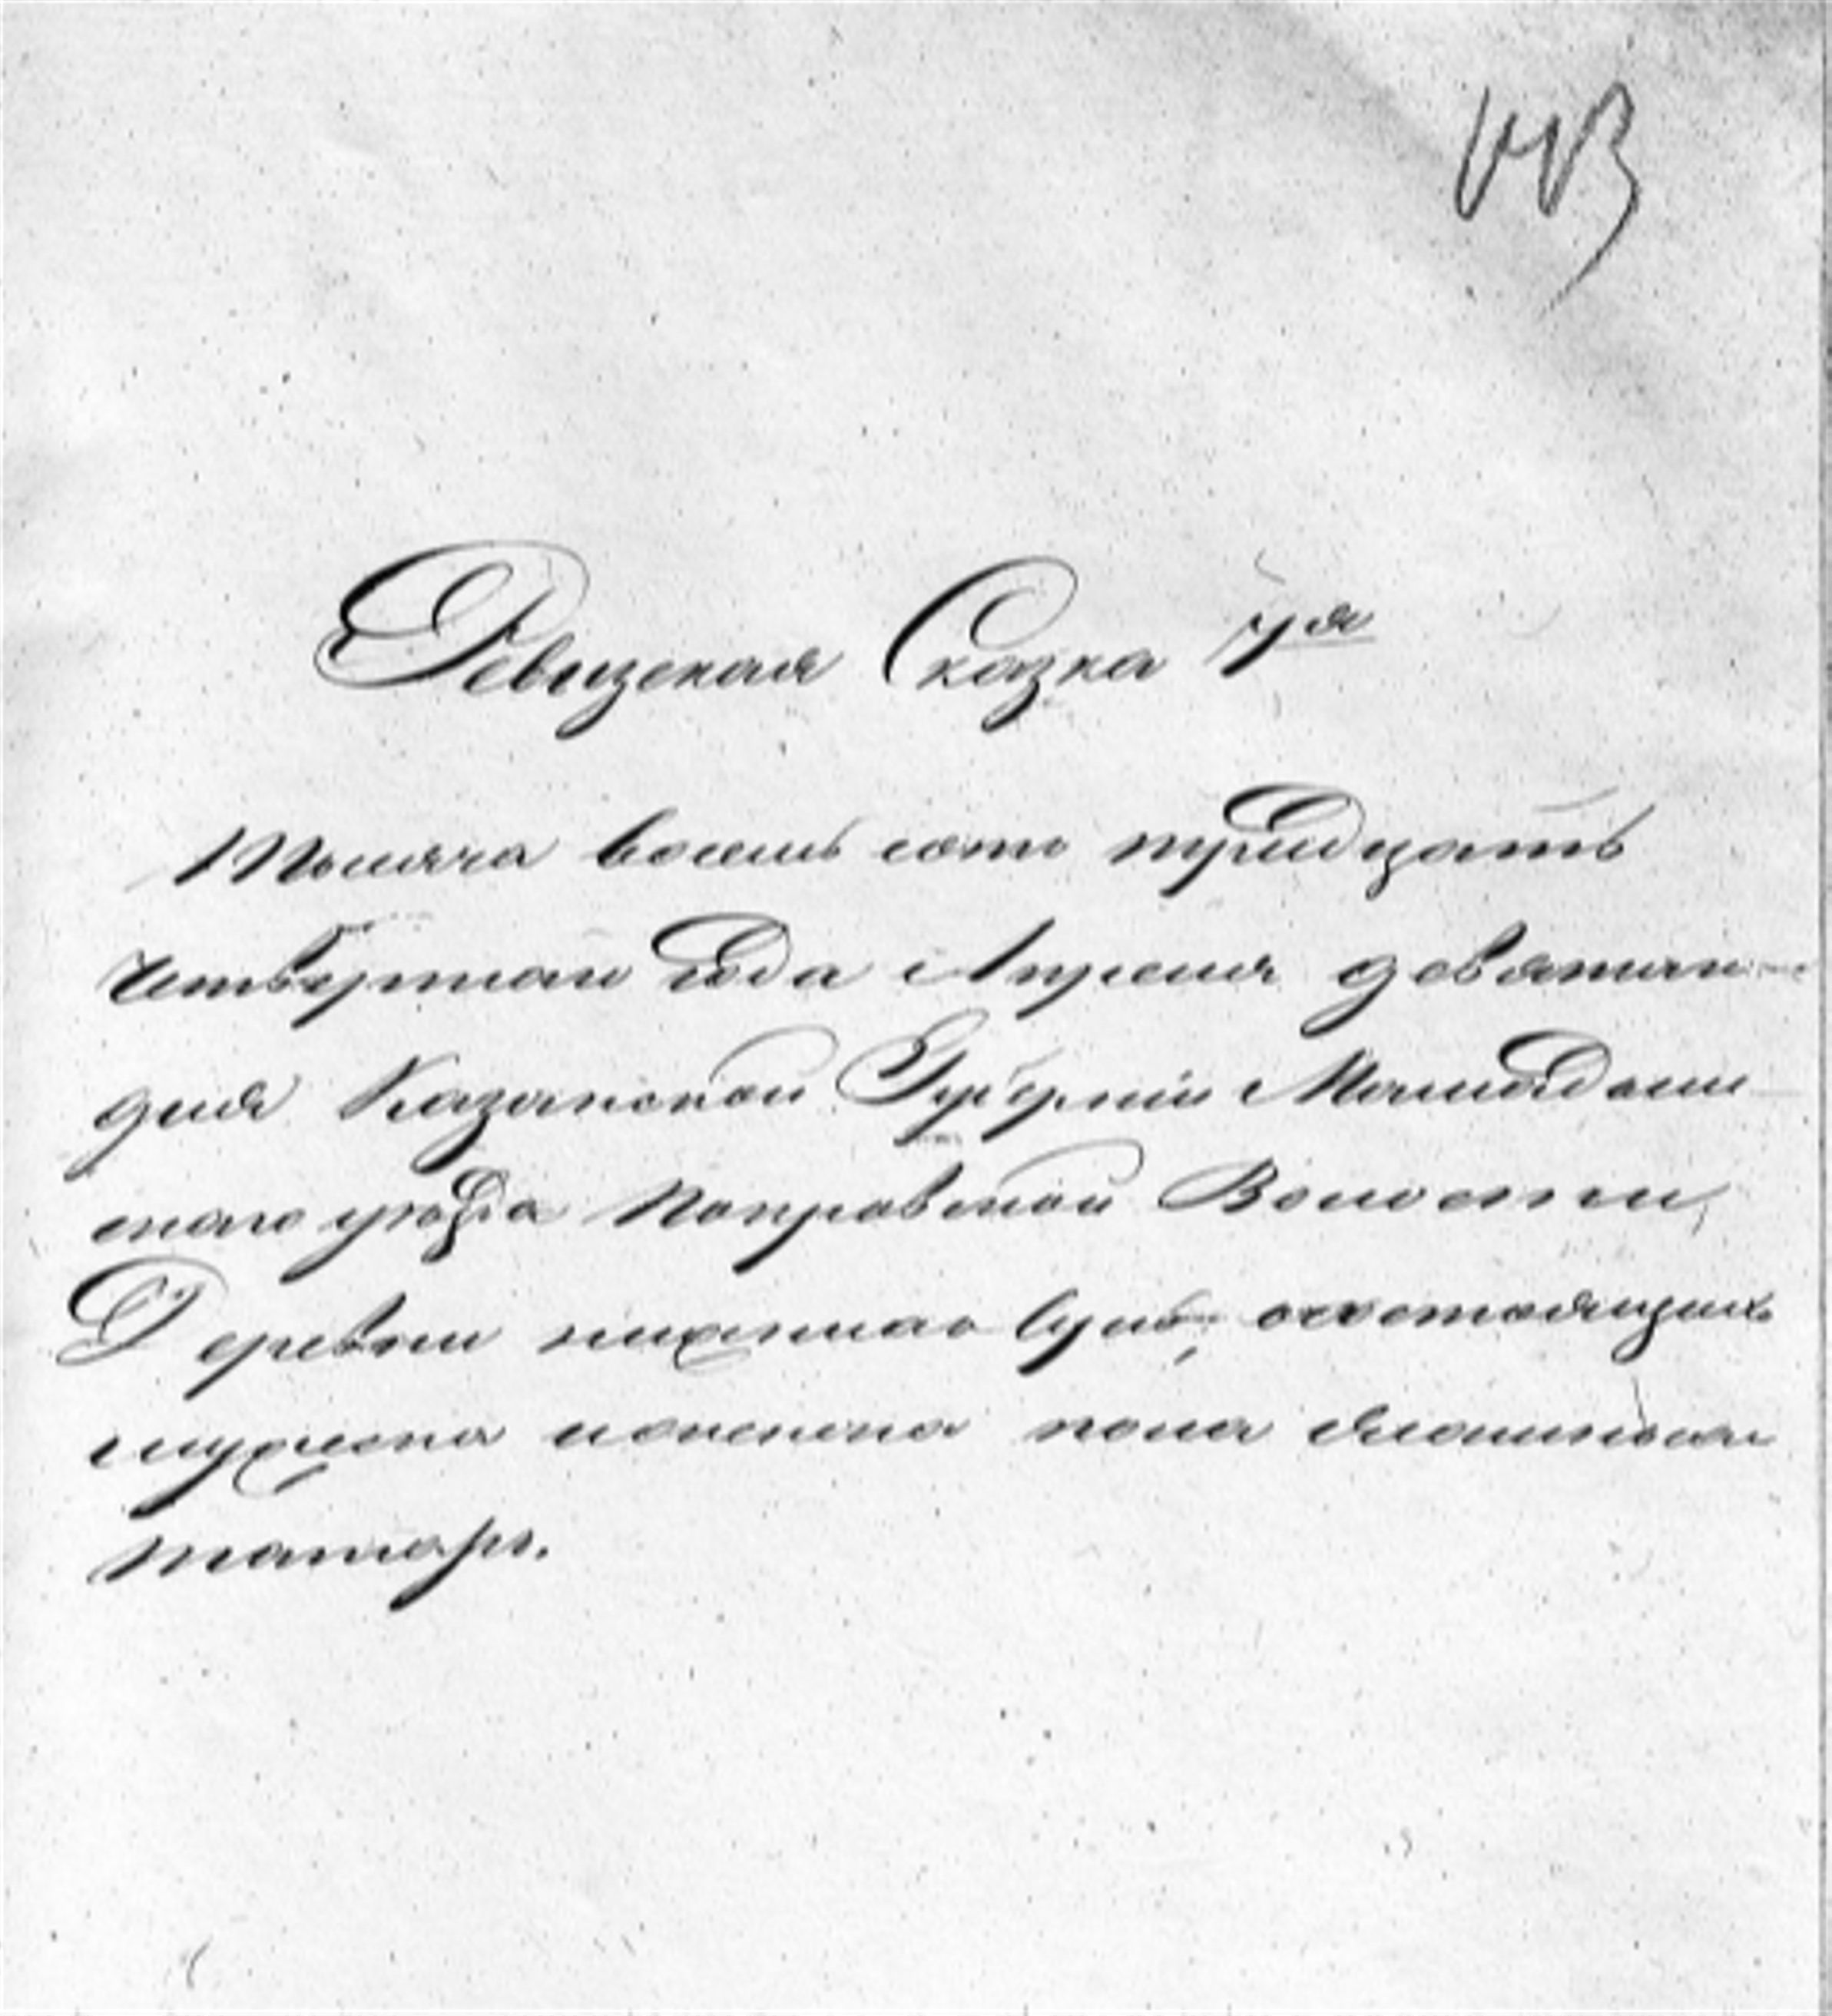 113
Ревизская Сказка 7я
Тысяча восемь сотъ тридцать
четвертаго года Апреля девятаго
дня Казанской Губерніи Мамадыш
скаго уѣзда Кокравской Волости,
Деревни нижнаго осостоящихъ
мужеска иженска пола ясашныхъ
татаръ.